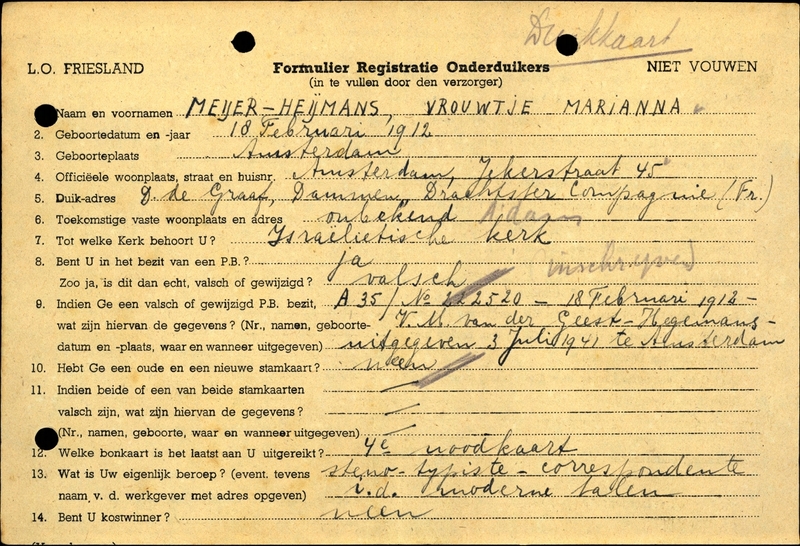 Duikkaart
L.O. FRIESLAND Formulier Registratie Onderduikers NIET VOUWEN
(in te vullen door den verzorger)
Naam en voornamen MEIJER-HEIJMANS, VROUWTJE MARIANNA
2. Geboortedatum en -jaar 18 Februari 1912
3. Geboorteplaats Amsterdam
4. Officiëele woonplaats, straat en huisnr. Amsterdam, Jekerstraat 45
5. Duik-adres D. de Graaf, Dammen, Drachtster Compagnie (Fr.)
6. Toekomstige vaste woonplaats en adres onbekend A'dam
7. Tot welke Kerk behoort U? Israëlietische kerk
8. Bent U in het bezit van een P.B.? ja
Zoo ja, is dit dan echt, valsch of gewijzigd? valsch inschrijven
9. Indien Ge een valsch of gewijzigd P.B. bezit, A 35/No 222520 - 18 Februari 1912 -
wat zijn hiervan de gegevens? (Nr., namen, geboorte- V. M. van der Geest-Hegemans -
datum en -plaats, waar en wanneer uitgegeven) uitgegeven 3 Juli 1941 te Amsterdam
10. Hebt Ge een oude en een nieuwe stamkaart? neen
11. Indien beide of een van beide stamkaarten
valsch zijn, wat zijn hiervan de gegevens?
(Nr., namen, geboorte, waar en wanneer uitgegeven)
12. Welke bonkaart is het laatst aan U uitgereikt? 4e noodkaart
13. Wat is Uw eigenlijk beroep? (event. tevens steno-typiste - correspondente
naam, v. d. werkgever met adres opgeven) i.d. moderne talen
14. Bent U kostwinner? neen